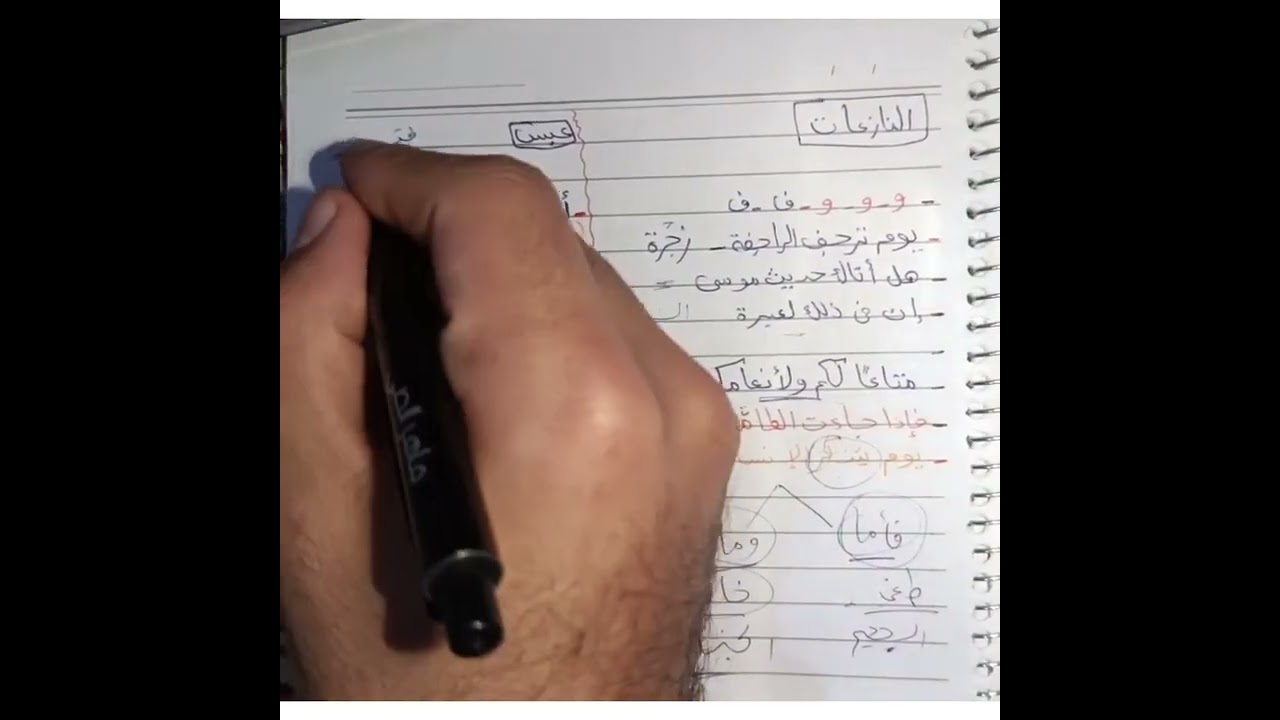 النازعات
عبس
- و - و - و - ف - ف
- يوم ترجف الراجفة - زجرة
- هل أتاك حديث موسى =
- إن فى ذلك لعبرة
متاعًا لكم ولأنعامكم
- فإذا جاءت الطامة
- يوم يتذكر الإنس
فأما وما
طغى خا
الجحيم